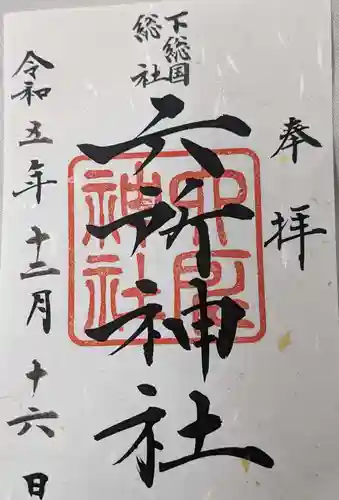 奉拝
下総国
総社
六所神社
六所
神社
令和五年十二月十六日